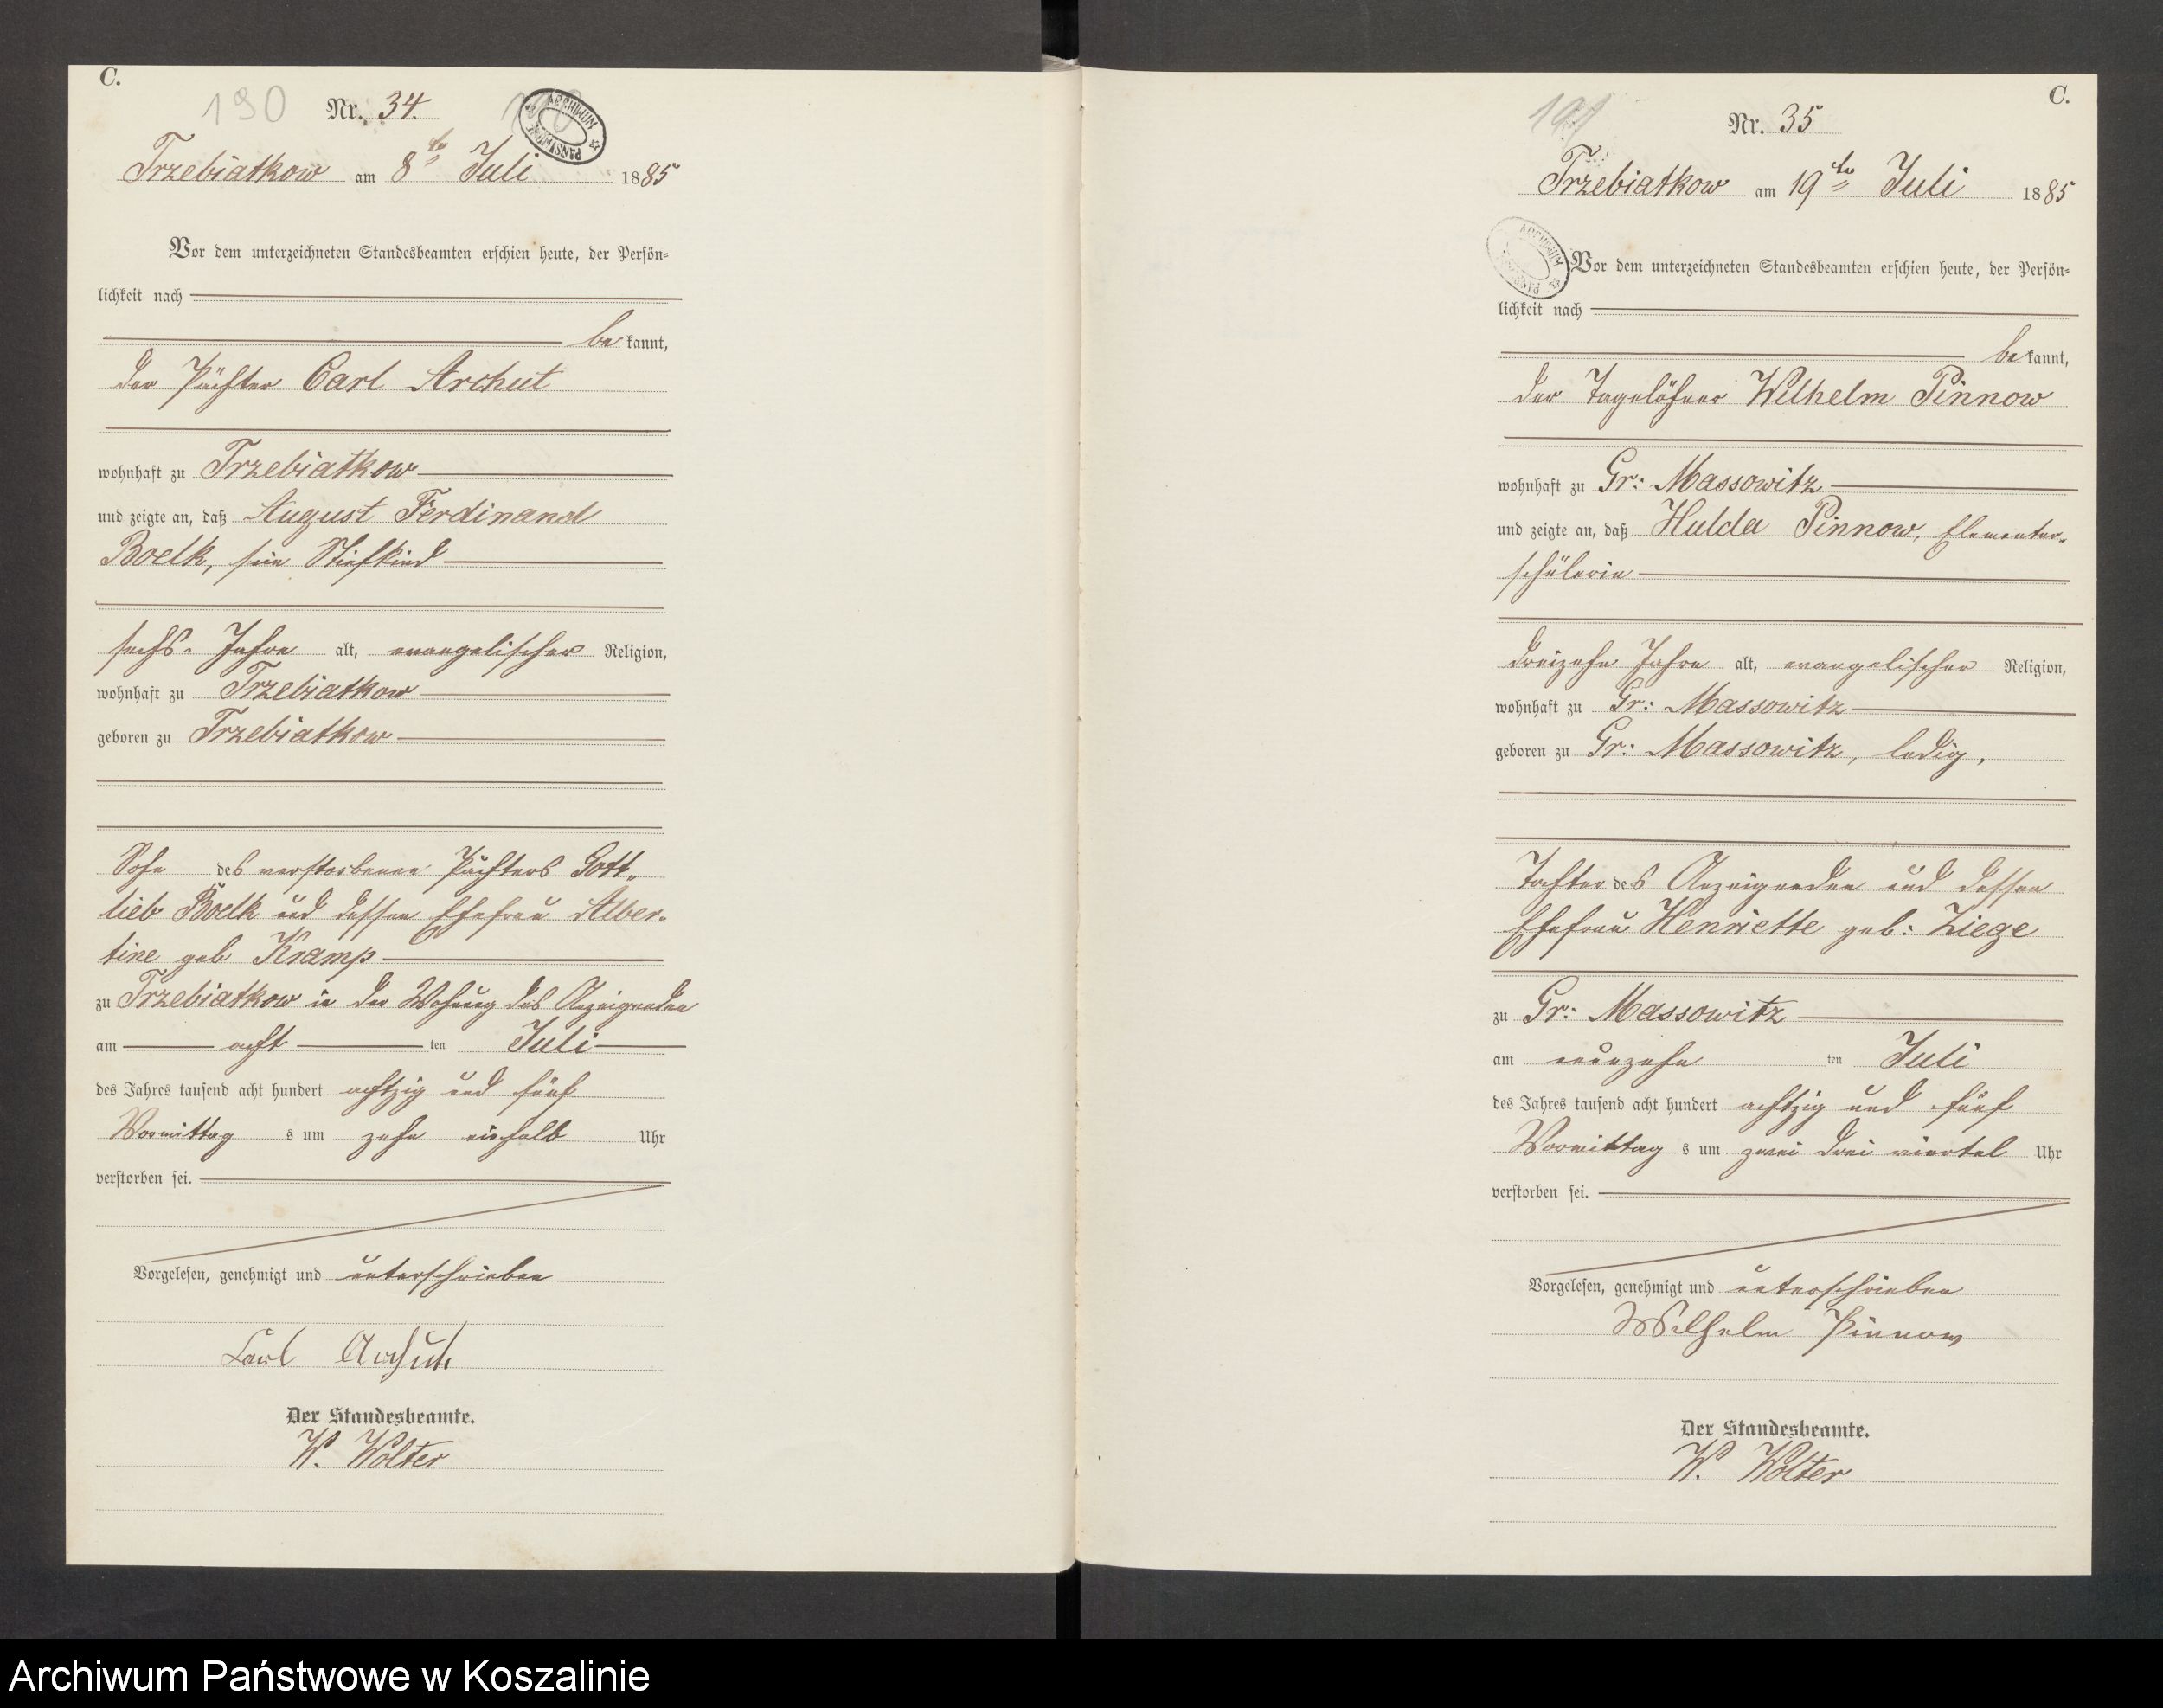 C.
190
Nr. 34.
ARCHIWUM PAŃSTWOWE
Trzebiatkow am 8ten Juli 1885
Vor dem unterzeichneten Standesbeamten erschien heute, der Persön-
lichkeit nach
be kannt,
der Pächter Carl Archut
wohnhaft zu Trzebiatkow
und zeigte an, daß August Ferdinand
Boelk, sein Stiefkind
sechs Jahre alt, evangelischer Religion,
wohnhaft zu Trzebiatkow
geboren zu Trzebiatkow
Sohn des verstorbenen Pächters Gott-
lieb Boelk und dessen Ehefrau Alber-
tine geb Kramp
zu Trzebiatkow in der Wohnung des Anzeigenden
am acht ten Juli
des Jahres tausend acht hundert achtzig und fünf
Vormittag s um zehn einhalb Uhr
verstorben sei.
Vorgelesen, genehmigt und unterschrieben
Carl Archut
Der Standesbeamte.
W. Wolter
C.
191
Nr. 35
Trzebiatkow am 19ten Juli 1885
ARCHIWUM PAŃSTWOWE
Vor dem unterzeichneten Standesbeamten erschien heute, der Persön-
lichkeit nach
be kannt,
der Tagelöhner Wilhelm Pinnow
wohnhaft zu Gr: Massowitz
und zeigte an, daß Hulda Pinnow, Elementar-
schülerin
dreizehn Jahre alt, evangelischer Religion,
wohnhaft zu Gr: Massowitz
geboren zu Gr: Massowitz, ledig,
Tochter des Anzeigenden und dessen
Ehefrau Henriette geb: Ziege
zu Gr: Massowitz
am neunzehn ten Juli
des Jahres tausend acht hundert achtzig und fünf
Vormittag s um zwei drei viertel Uhr
verstorben sei.
Vorgelesen, genehmigt und unterschrieben
Wilhelm Pinnow
Der Standesbeamte.
W. Wolter
Archiwum Państwowe w Koszalinie